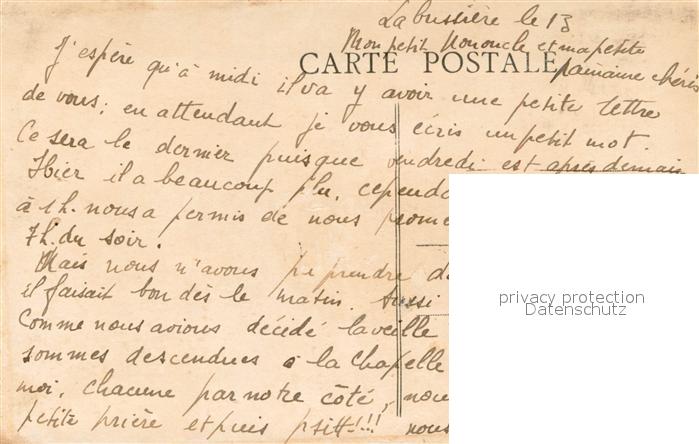 La bussière le 13
Mon petit Nononcle et ma petite
CARTE POSTALE
Marraine chéris
J'espère qu'à midi il va y avoir une petite lettre
de vous; en attendant je vous écris un petit mot.
Ce sera le dernier puisque vendredi est après demain
Hier il a beaucoup plu, cependa
à 5 h. nous a permis de nous prome
7 h. du soir.
Mais nous n'avons pu prendre d
il faisait bon dès le matin. Aussi
Comme nous avions décidé la veille
sommes descendues à la Chapelle
moi, chacune par notre côté, nou
petite prière et puis psitt!!! nous
privacy protection
Datenschutz